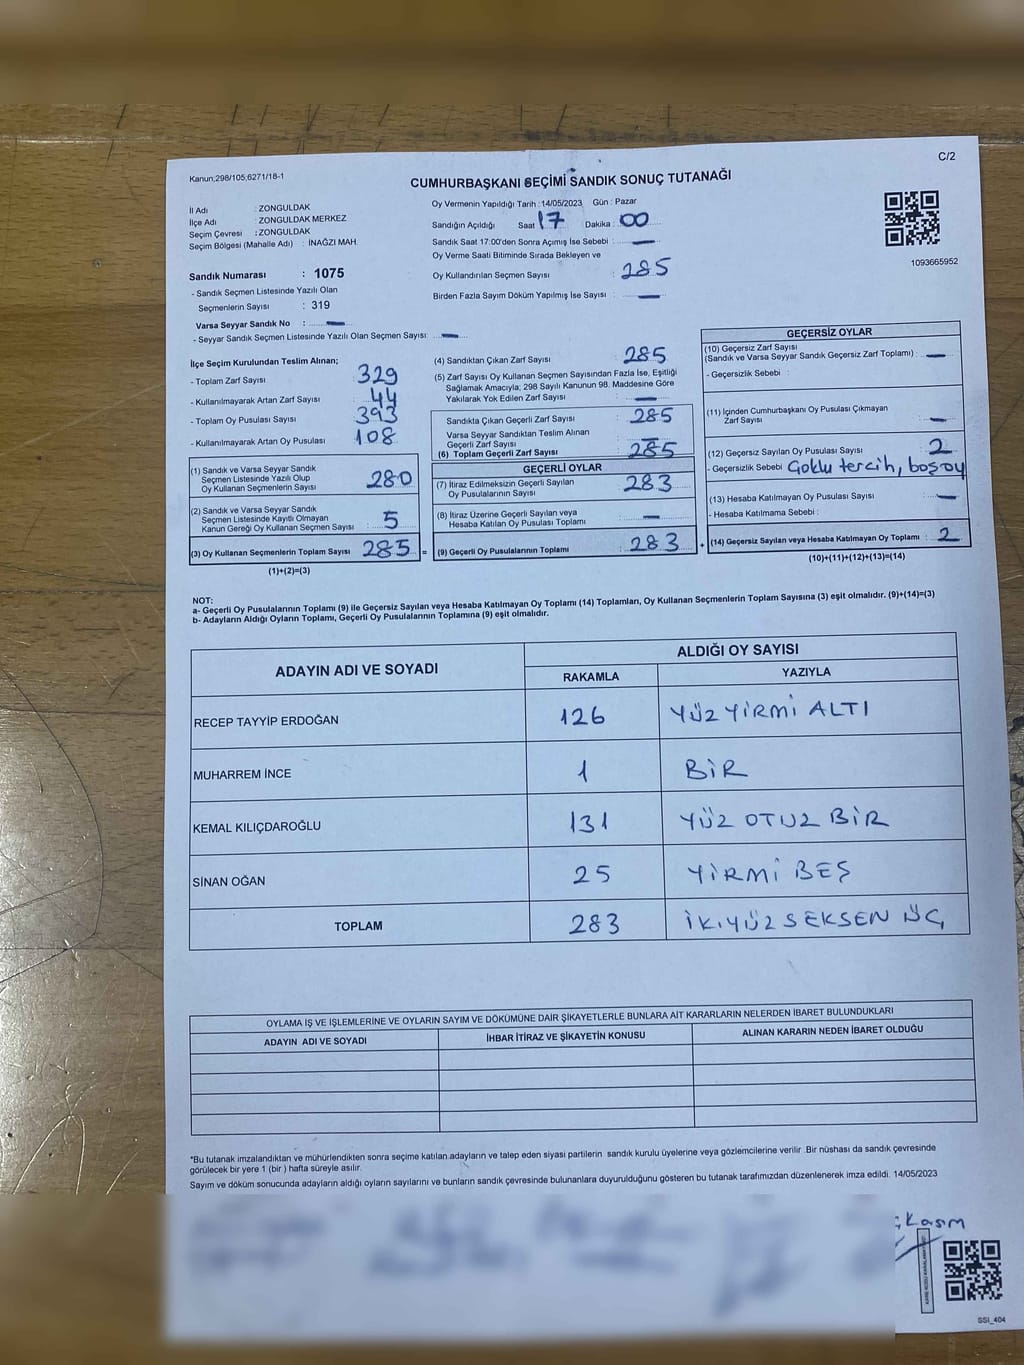 C/2
Kanun;298/105,6271/18-1
CUMHURBAŞKANI SEÇİMİ SANDIK SONUÇ TUTANAĞI
İl Adı : ZONGULDAK
İlçe Adı : ZONGULDAK MERKEZ
Seçim Çevresi : ZONGULDAK
Seçim Bölgesi (Mahalle Adı) : İNAĞZI MAH.
Oy Vermenin Yapıldığı Tarih :14/05/2023 Gün : Pazar
Sandığın Açıldığı Saat 17 Dakika : 00
Sandık Saat 17:00'den Sonra Açımış İse Sebebi : —
Oy Verme Saati Bitiminde Sırada Bekleyen ve
Oy Kullandırılan Seçmen Sayısı : 285
Birden Fazla Sayım Döküm Yapılmış İse Sayısı : —
1093665952
Sandık Numarası : 1075
- Sandık Seçmen Listesinde Yazılı Olan
Seçmenlerin Sayısı : 319
Varsa Seyyar Sandık No : —
- Seyyar Sandık Seçmen Listesinde Yazılı Olan Seçmen Sayısı: —
İlçe Seçim Kurulundan Teslim Alınan;
- Toplam Zarf Sayısı 329
- Kullanılmayarak Artan Zarf Sayısı : 44
- Toplam Oy Pusulası Sayısı 393
- Kullanılmayarak Artan Oy Pusulası 108
(1) Sandık ve Varsa Seyyar Sandık
Seçmen Listesinde Yazılı Olup
Oy Kullanan Seçmenlerin Sayısı 280
(2) Sandık ve Varsa Seyyar Sandık
Seçmen Listesinde Kayıtlı Olmayan
Kanun Gereği Oy Kullanan Seçmen Sayısı : 5
(3) Oy Kullanan Seçmenlerin Toplam Sayısı 285 =
(1)+(2)=(3)
(4) Sandıktan Çıkan Zarf Sayısı : 285
(5) Zarf Sayısı Oy Kullanan Seçmen Sayısından Fazla İse, Eşitliği
Sağlamak Amacıyla; 298 Sayılı Kanunun 98. Maddesine Göre
Yakılarak Yok Edilen Zarf Sayısı : —
Sandıkta Çıkan Geçerli Zarf Sayısı : 285
Varsa Seyyar Sandıktan Teslim Alınan
Geçerli Zarf Sayısı : —
(6) Toplam Geçerli Zarf Sayısı : 285
GEÇERLİ OYLAR
(7) İtiraz Edilmeksizin Geçerli Sayılan
Oy Pusulalarının Sayısı : 283
(8) İtiraz Üzerine Geçerli Sayılan veya
Hesaba Katılan Oy Pusulası Toplamı : —
(9) Geçerli Oy Pusulalarının Toplamı : 283 +
GEÇERSİZ OYLAR
(10) Geçersiz Zarf Sayısı
(Sandık ve Varsa Seyyar Sandık Geçersiz Zarf Toplamı) : —
- Geçersizlik Sebebi :
(11) İçinden Cumhurbaşkanı Oy Pusulası Çıkmayan
Zarf Sayısı : —
(12) Geçersiz Sayılan Oy Pusulası Sayısı : 2
- Geçersizlik Sebebi Çoklu tercih, boş oy
(13) Hesaba Katılmayan Oy Pusulası Sayısı : —
- Hesaba Katılmama Sebebi :
(14) Geçersiz Sayılan veya Hesaba Katılmayan Oy Toplamı : 2
(10)+(11)+(12)+(13)=(14)
NOT:
a- Geçerli Oy Pusulalarının Toplamı (9) ile Geçersiz Sayılan veya Hesaba Katılmayan Oy Toplamı (14) Toplamları, Oy Kullanan Seçmenlerin Toplam Sayısına (3) eşit olmalıdır. (9)+(14)=(3)
b- Adayların Aldığı Oyların Toplamı, Geçerli Oy Pusulalarının Toplamına (9) eşit olmalıdır.
ADAYIN ADI VE SOYADI
ALDIĞI OY SAYISI
RAKAMLA YAZIYLA
RECEP TAYYİP ERDOĞAN 126 YÜZ YİRMİ ALTI
MUHARREM İNCE 1 BİR
KEMAL KILIÇDAROĞLU 131 YÜZ OTUZ BİR
SİNAN OĞAN 25 YİRMİ BEŞ
TOPLAM 283 İKİYÜZ SEKSEN ÜÇ
OYLAMA İŞ VE İŞLEMLERİNE VE OYLARIN SAYIM VE DÖKÜMÜNE DAİR ŞİKAYETLERLE BUNLARA AİT KARARLARIN NELERDEN İBARET BULUNDUKLARI
ADAYIN ADI VE SOYADI İHBAR İTİRAZ VE ŞİKAYETİN KONUSU ALINAN KARARIN NEDEN İBARET OLDUĞU
*Bu tutanak imzalandıktan ve mühürlendikten sonra seçime katılan adayların ve talep eden siyasi partilerin sandık kurulu üyelerine veya gözlemcilerine verilir. Bir nüshası da sandık çevresinde
görülecek bir yere 1 (bir) hafta süreyle asılır.
Sayım ve döküm sonucunda adayların aldığı oyların sayılarını ve bunların sandık çevresinde bulunanlara duyurulduğunu gösteren bu tutanak tarafımızdan düzenlenerek imza edildi. 14/05/2023
Kasım
SSI_404